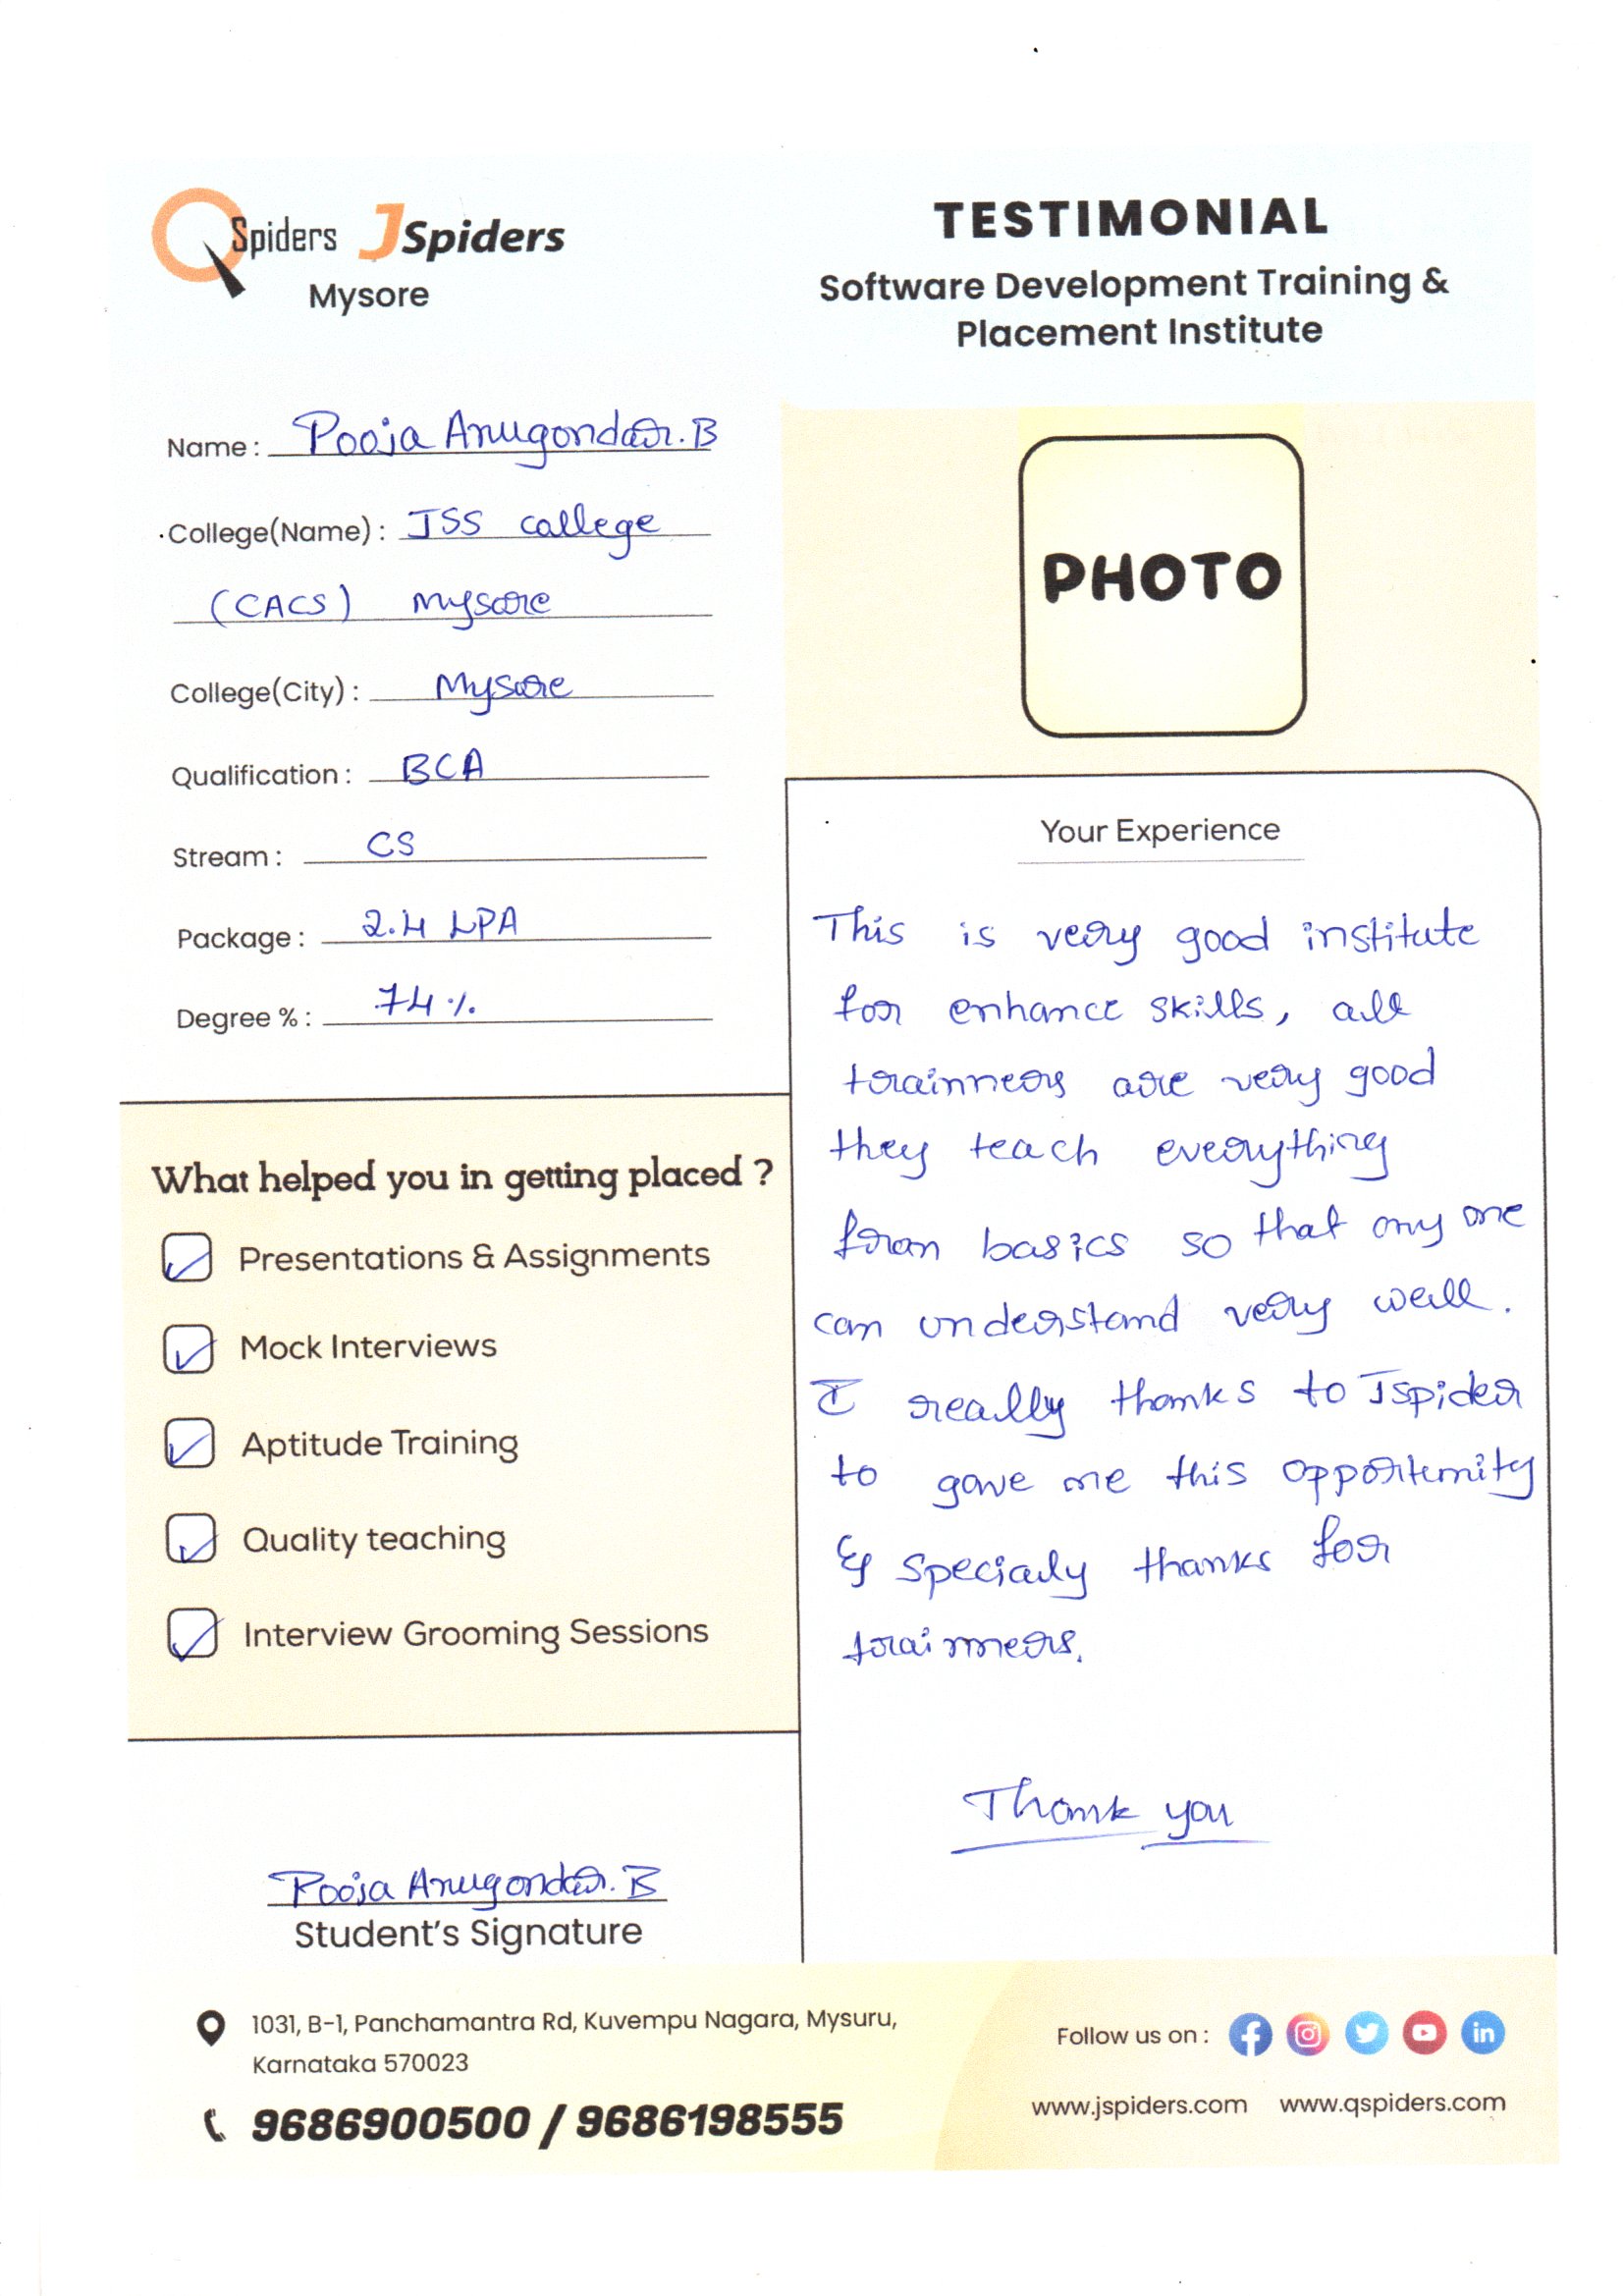 QSpiders JSpiders
Mysore
TESTIMONIAL
Software Development Training &
Placement Institute
Name : Pooja Anugondar.B
College(Name) : JSS college
(CACS) Mysore
College(City) : Mysore
Qualification : BCA
Stream : CS
Package : 2.4 LPA
Degree % : 74%
PHOTO
What helped you in getting placed ?
Presentations & Assignments
Mock Interviews
Aptitude Training
Quality teaching
Interview Grooming Sessions
Pooja Anugondar.B
Student's Signature
Your Experience
This is very good institute
for enhance skills, all
trainners are very good
they teach everything
from basics so that any one
can understand very well.
I really thanks to Jspider
to gave me this opportunity
& specialy thanks for
trainners.
Thank you
1031, B-1, Panchamantra Rd, Kuvempu Nagara, Mysuru,
Karnataka 570023
9686900500 / 9686198555
Follow us on :
www.jspiders.com www.qspiders.com